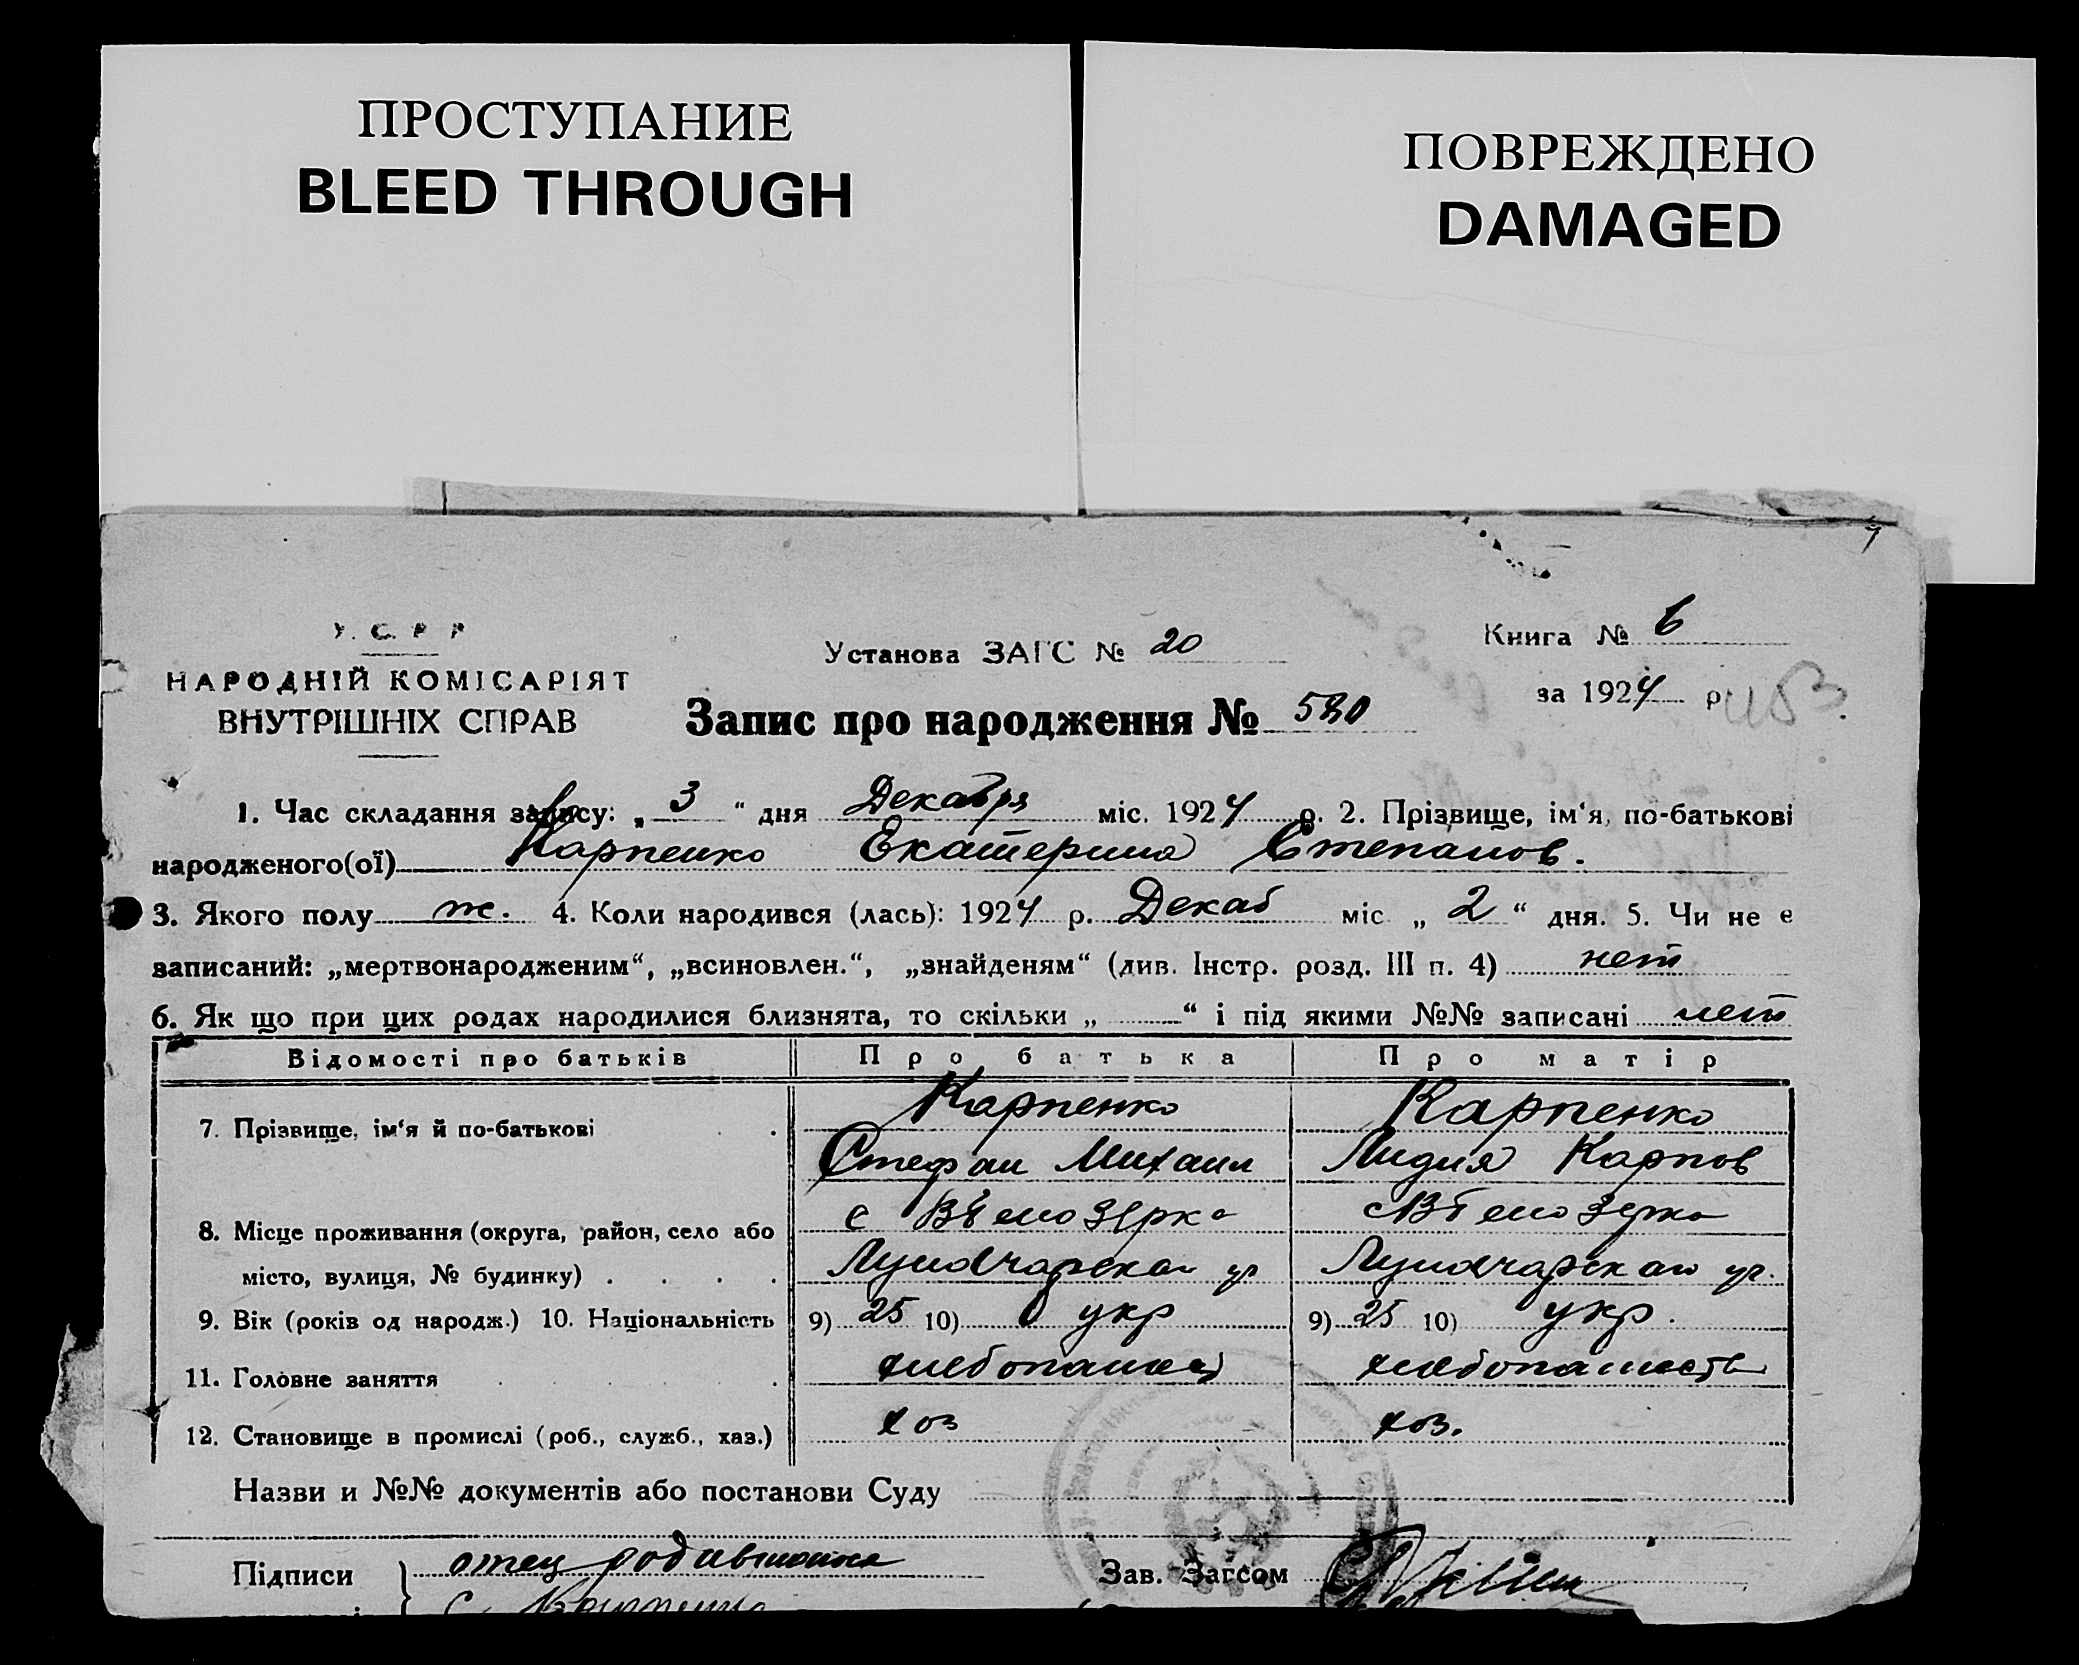 ПРОСТУПАНИЕ
BLEED THROUGH
ПОВРЕЖДЕНО
DAMAGED
У. С. Р Р
НАРОДНІЙ КОМІСАРІЯТ
ВНУТРІШНІХ СПРАВ
Установа ЗАГС № 20
Запис про народження №
Книга № 6
за 1924 р.
1. Час складання запису: „ 3 “ дня Декабря міс. 1924 р. 2. Прізвище, ім‘я, по-батькові
народженого(ої) Карпенко Екатерина Степанов.
3. Якого полу ж. 4. Коли народився (лась): 1924 р. Декаб міс „ 2 “ дня. 5. Чи не є
записаний: „мертвонародженим“, „всиновлен.“, „знайденям“ (див. Інстр. розд. III п. 4) нет
6. Як що при цих родах народилися близнята, то скільки „ “ і під якими №№ записані нет
Відомості про батьків Про батька Про матір
7. Прізвище, ім‘я й по-батькові
Карпенко Карпенко
Стефан Михаил Лидия Карпов
8. Місце проживання (округа, район, село або
місто, вулиця, № будинку)
с Вѣлозерка с Вѣлозерка
Луначарская ул Луначарская ул.
9. Вік (років од народж.) 10. Національність 9) 25 10) укр 9) 25 10) укр.
11. Головне заняття хлебопашец хлебопашеств
12. Становище в промислі (роб., служб., хаз.) хоз хоз.
Назви и №№ документів або постанови Суду
Підписи отец
Зав. Загсом